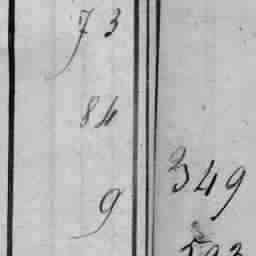 73
84
349
9
593